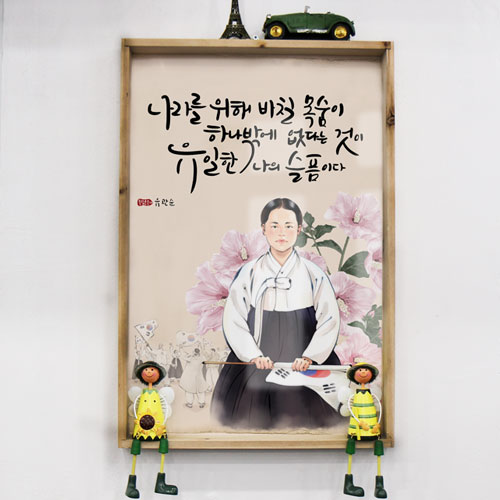 나라를 위해 바칠 목숨이
하나밖에 없다는 것이
유일한 나의 슬픔이다
유관순